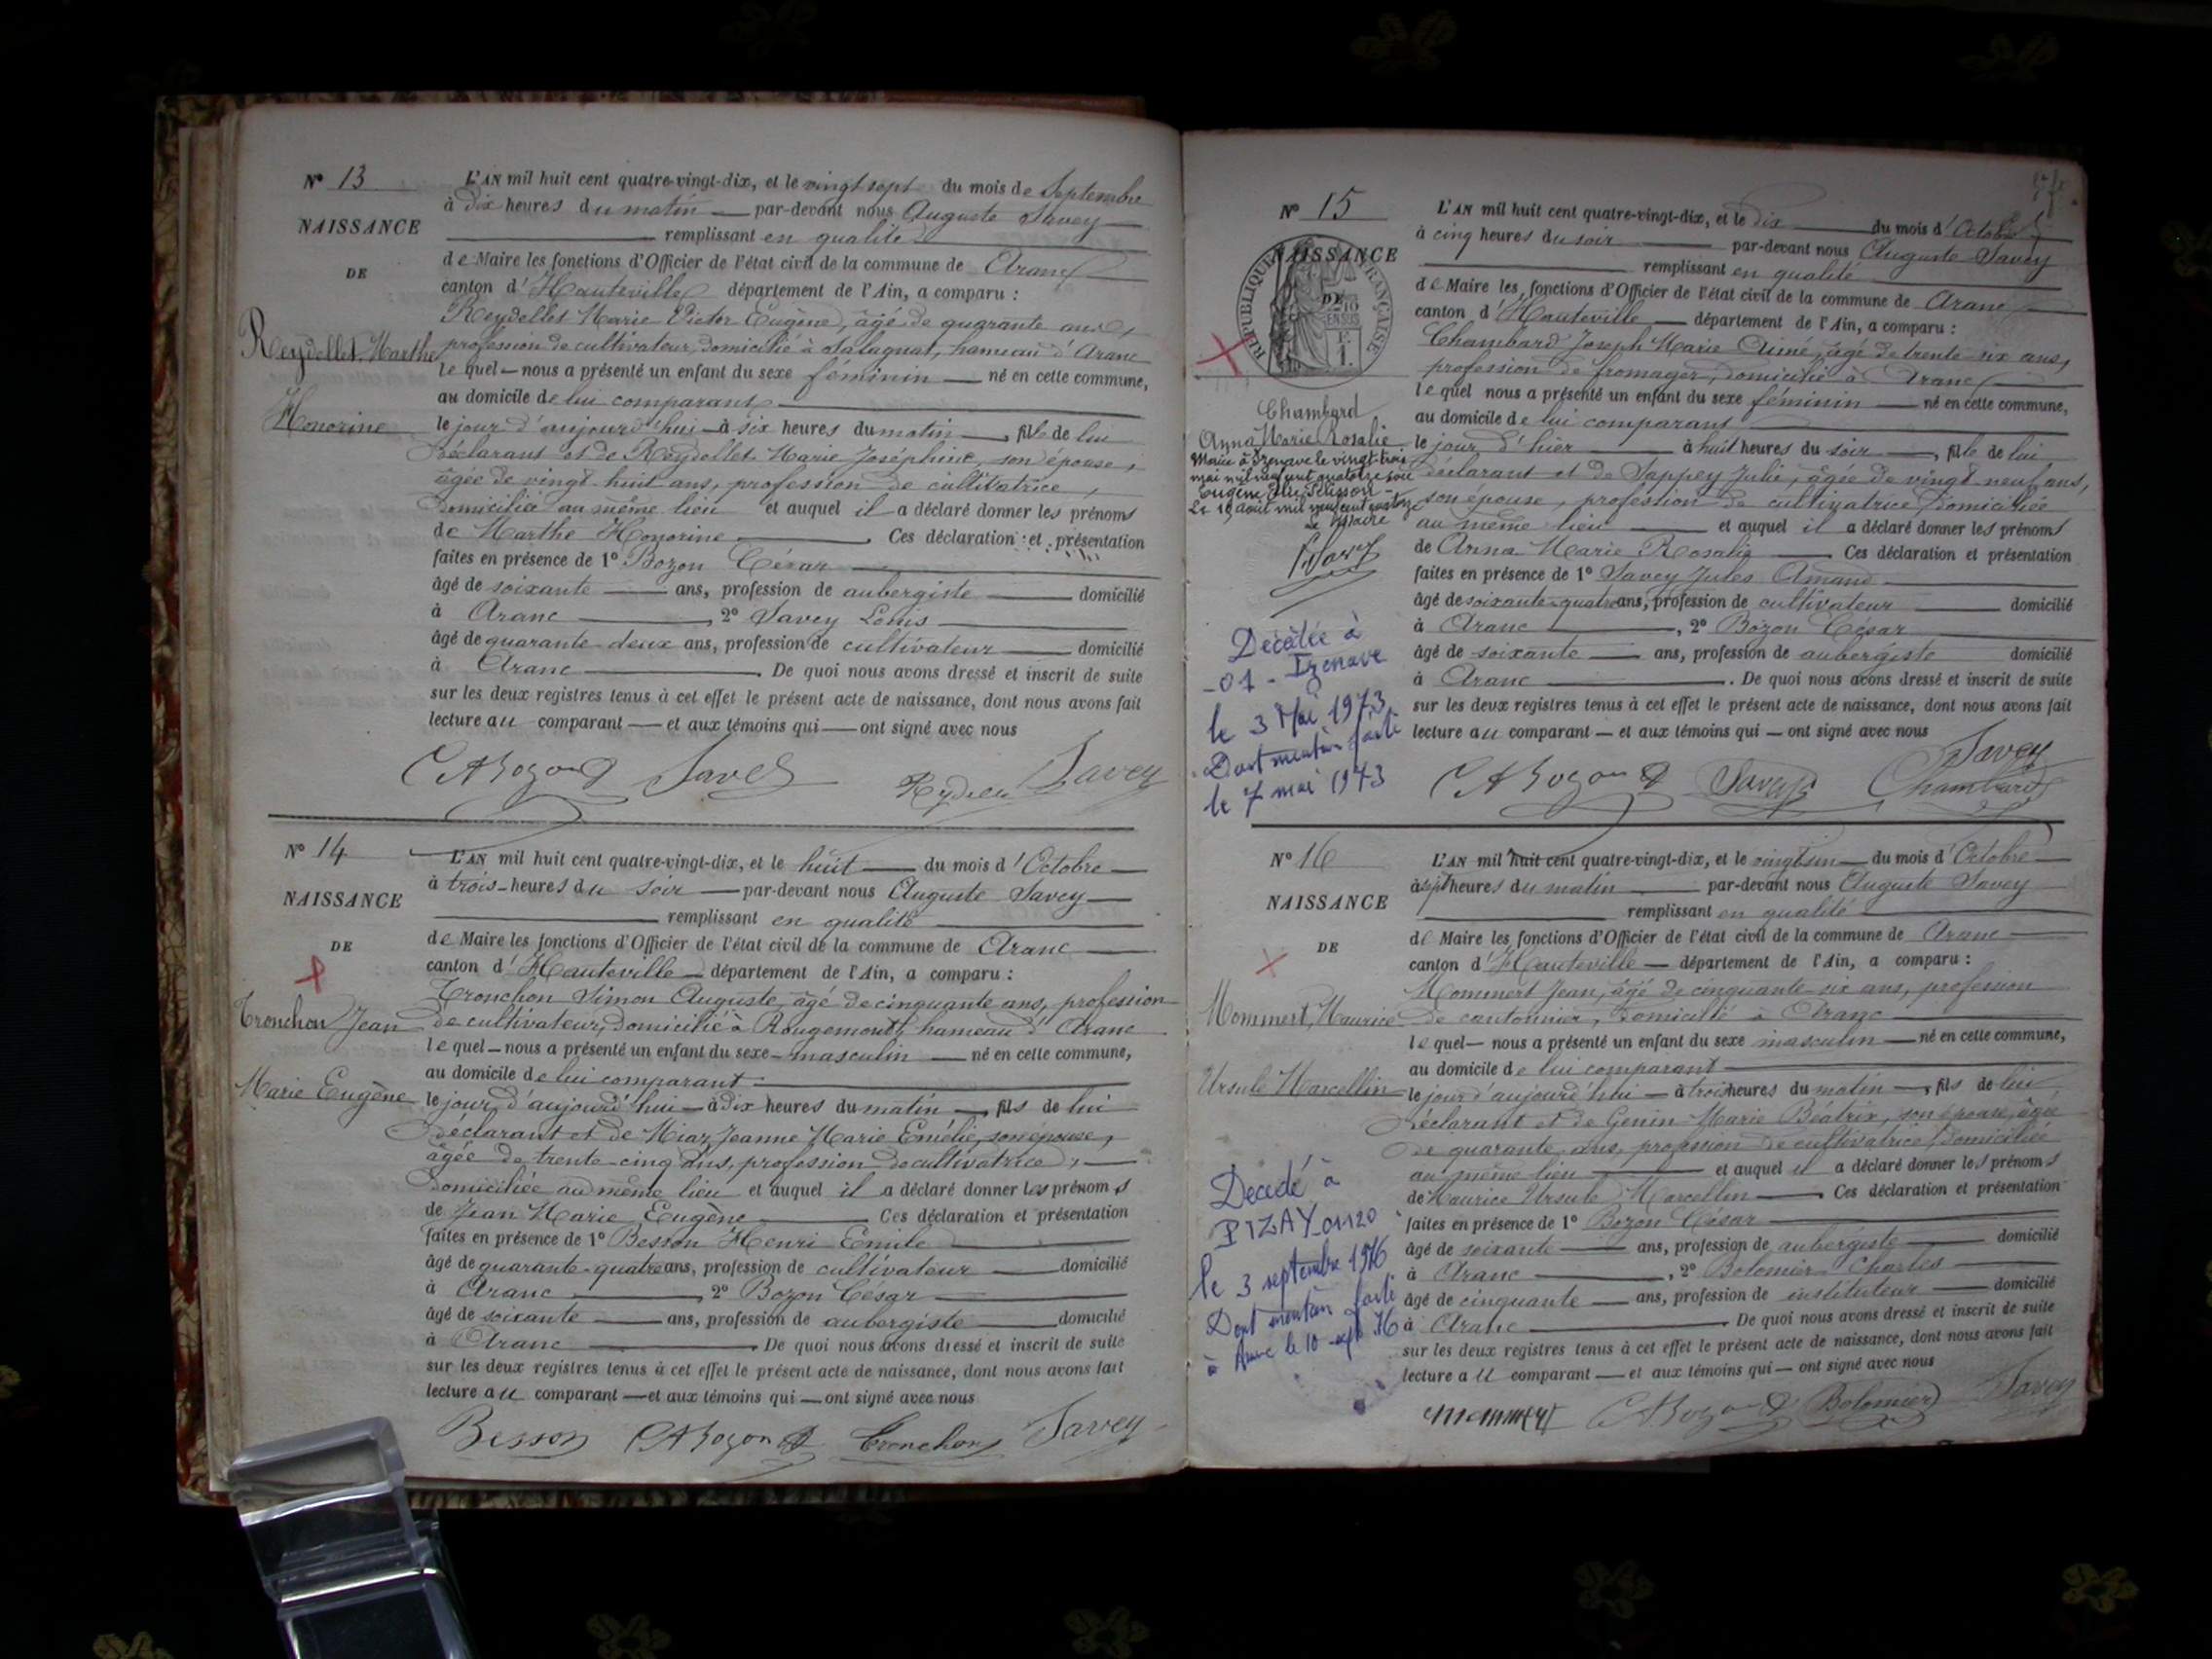 N° 13
NAISSANCE
DE
Reydellet Marthe
Honorine
L'AN mil huit cent quatre-vingt-dix, et le vingt sept du mois de Septembre
à dix heures du matin par-devant nous Auguste Savey
remplissant en qualité
de Maire les fonctions d'Officier de l'état civil de la commune de Aranc
canton d'Hauteville département de l'Ain, a comparu :
Reydellet Marie Victor Eugène, âgé de quarante ans,
profession de cultivateur, domicilié à Salagnat, hameau d'Aranc
lequel nous a présenté un enfant du sexe féminin né en cette commune,
au domicile de lui comparant
le jour d'aujourd'hui à six heures du matin, fille de lui
déclarant et de Reydellet Marie Joséphine, son épouse,
âgée de vingt huit ans, profession de cultivatrice,
domiciliée au même lieu et auquel il a déclaré donner les prénoms
de Marthe Honorine. Ces déclaration et présentation
faites en présence de 1° Bozon César
âgé de soixante ans, profession de aubergiste domicilié
à Aranc, 2° Savey Louis
âgé de quarante deux ans, profession de cultivateur domicilié
à Aranc. De quoi nous avons dressé et inscrit de suite
sur les deux registres tenus à cet effet le présent acte de naissance, dont nous avons fait
lecture au comparant et aux témoins qui ont signé avec nous
Bozon Savey Savey
N° 14
NAISSANCE
DE
Tronchon Jean
Marie Eugène
L'AN mil huit cent quatre-vingt-dix, et le huit du mois d'Octobre
à trois heures du soir par-devant nous Auguste Savey
remplissant en qualité
de Maire les fonctions d'Officier de l'état civil de la commune de Aranc
canton d'Hauteville département de l'Ain, a comparu :
Tronchon Simon Auguste, âgé de cinquante ans, profession
de cultivateur, domicilié à Rougemont, hameau d'Aranc
lequel nous a présenté un enfant du sexe masculin né en cette commune,
au domicile de lui comparant
le jour d'aujourd'hui à dix heures du matin, fils de lui
déclarant et de Miaz Jeanne Marie Emélie, son épouse,
âgée de trente-cinq ans, profession de cultivatrice,
domiciliée au même lieu et auquel il a déclaré donner les prénoms
de Jean Marie Eugène Ces déclaration et présentation
faites en présence de 1° Besson Henri Emile
âgé de quarante-quatre ans, profession de cultivateur domicilié
à Aranc, 2° Bozon César
âgé de soixante ans, profession de aubergiste domicilié
à Aranc. De quoi nous avons dressé et inscrit de suite
sur les deux registres tenus à cet effet le présent acte de naissance, dont nous avons fait
lecture au comparant et aux témoins qui ont signé avec nous
Besson Bozon Tronchon Savey
N° 15
NAISSANCE
DE
RÉPUBLIQUE FRANÇAISE
Chambard
Anna Marie Rosalie
Mariée à Izenave le vingt-trois
mai mil neuf cent quatorze avec
Eugène Pélisson
Le Maire
Savey
Décédée à
-01- Izenave
le 3 Mai 1973
Dont mention faite
le 7 mai 1973
L'AN mil huit cent quatre-vingt-dix, et le dix du mois d'Octobre
à cinq heures du soir par-devant nous Auguste Savey
remplissant en qualité
de Maire les fonctions d'Officier de l'état civil de la commune de Aranc
canton d'Hauteville département de l'Ain, a comparu :
Chambard Joseph Marie Aimé, âgé de trente-six ans,
profession de fromager, domicilié à Aranc
lequel nous a présenté un enfant du sexe féminin né en cette commune,
au domicile de lui comparant
le jour d'hier à huit heures du soir, fille de lui
déclarant et de Sappey Julie, âgée de vingt neuf ans,
son épouse, profession de cultivatrice, domiciliée
au même lieu et auquel il a déclaré donner les prénoms
de Anna Marie Rosalie Ces déclaration et présentation
faites en présence de 1° Savey Jules Amand
âgé de soixante-quatre ans, profession de cultivateur domicilié
à Aranc, 2° Bozon César
âgé de soixante ans, profession de aubergiste domicilié
à Aranc. De quoi nous avons dressé et inscrit de suite
sur les deux registres tenus à cet effet le présent acte de naissance, dont nous avons fait
lecture au comparant et aux témoins qui ont signé avec nous
Savey
Bozon Savey Chambard
N° 16
NAISSANCE
DE
Mommert, Maurice
Ursule Marcellin
Décédé à
PIZAY_01120
le 3 septembre 1976
Dont mention faite
à Aranc le 10 sept 76
L'AN mil huit cent quatre-vingt-dix, et le vingt un du mois d'Octobre
à sept heures du matin par-devant nous Auguste Savey
remplissant en qualité
de Maire les fonctions d'Officier de l'état civil de la commune de Aranc
canton d'Hauteville département de l'Ain, a comparu :
Mommert Jean, âgé de cinquante-six ans, profession
de cantonnier, domicilié à Aranc
lequel nous a présenté un enfant du sexe masculin né en cette commune,
au domicile de lui comparant
le jour d'aujourd'hui à trois heures du matin, fils de lui
déclarant et de Genin Marie Béatrix, son épouse, âgée
de quarante ans, profession de cultivatrice, domiciliée
au même lieu et auquel il a déclaré donner les prénoms
de Maurice Ursule Marcellin. Ces déclaration et présentation
faites en présence de 1° Bozon César
âgé de soixante ans, profession de aubergiste domicilié
à Aranc, 2° Bolomier Charles
âgé de cinquante ans, profession de instituteur domicilié
à Aranc. De quoi nous avons dressé et inscrit de suite
sur les deux registres tenus à cet effet le présent acte de naissance, dont nous avons fait
lecture au comparant et aux témoins qui ont signé avec nous
Mommert Bozon Bolomier Savey